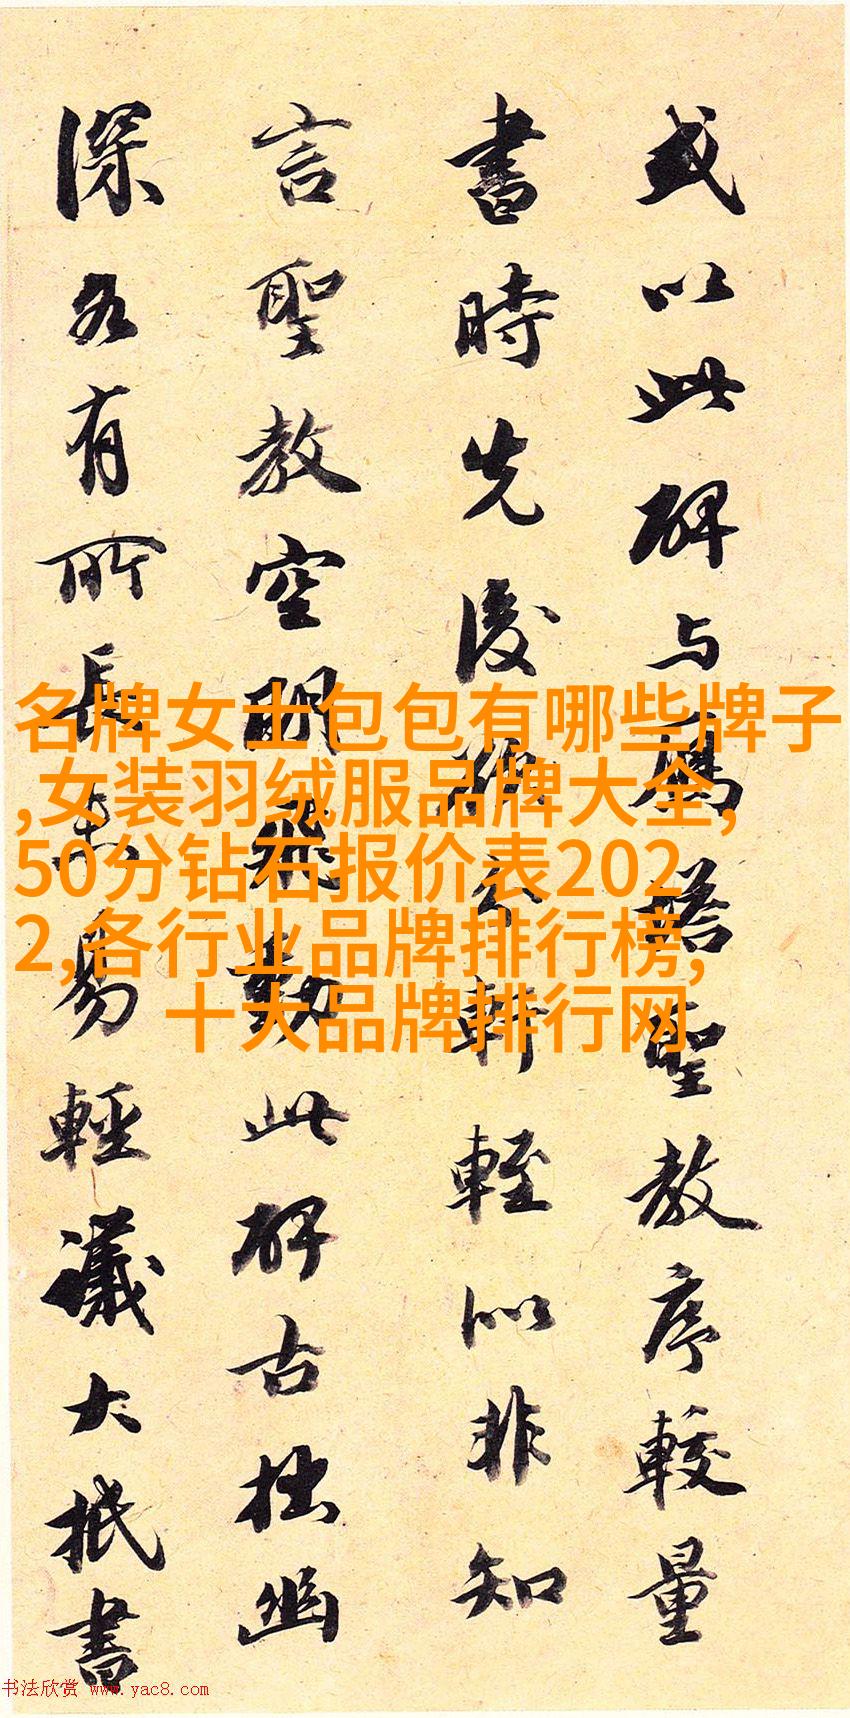 或以此碑与雁塔聖教序較量
書時先後疏密軒輊似非知
言聖教空明飛動此碑古拙幽
深各有所長未易輕議大抵書
名牌女士包包有哪些牌子
,女装羽绒服品牌大全,
50分钻石报价表202
2,各行业品牌排行榜,
十大品牌排行网
书法欣赏 www.yac8.com